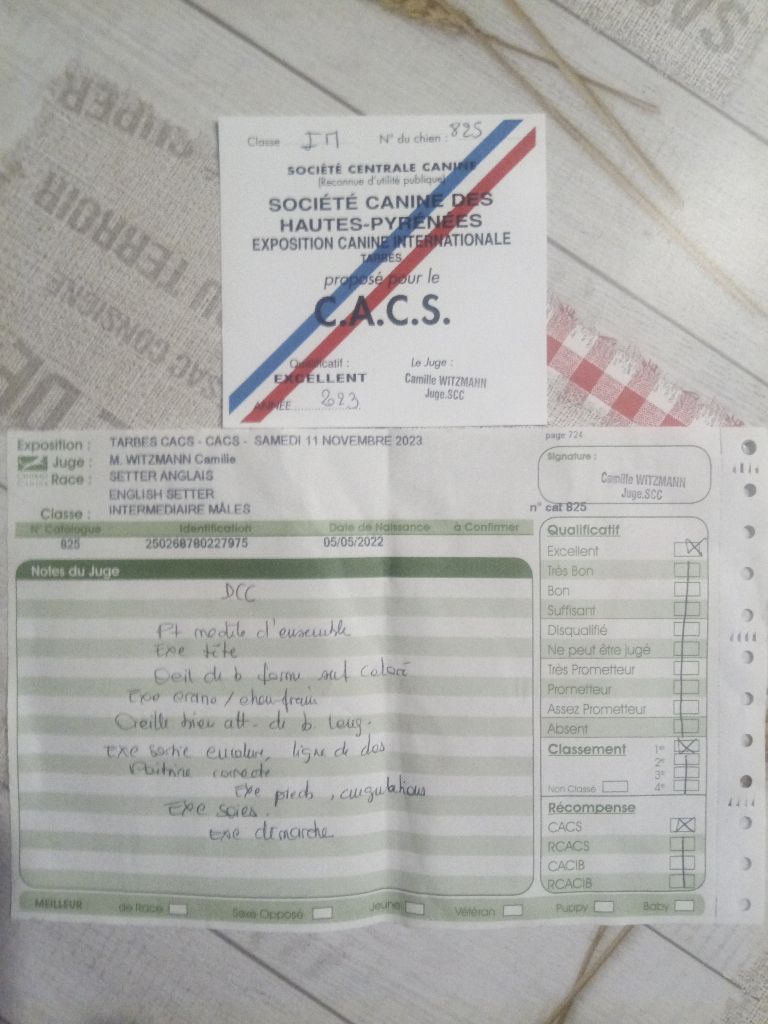 Classe IM N° du chien : 825
SOCIÉTÉ CENTRALE CANINE
(Reconnue d'utilité publique)
SOCIÉTÉ CANINE DES
HAUTES-PYRÉNÉES
EXPOSITION CANINE INTERNATIONALE
TARBES
proposé pour le
C.A.C.S.
Qualificatif : Le Juge :
EXCELLENT Camille WITZMANN
Juge.SCC
ANNÉE 2023
Exposition : TARBES CACS - CACS - SAMEDI 11 NOVEMBRE 2023 page 724
Juge : M. WITZMANN Camille Signature :
Race : SETTER ANGLAIS Camille WITZMANN
ENGLISH SETTER Juge.SCC
Classe : INTERMEDIAIRE MÂLES n° cat 825
N° Catalogue Identification Date de Naissance à Confirmer
825 250268780227975 05/05/2022
Notes du Juge
DCC
Pt modèle d'ensemble
Exe tête
Oeil de b forme suf coloré
Exe crane / chanfrein
Oreille bien att. de b. long.
Exe sortie encolure, ligne de dos
Poitrine correcte
Exe pieds, angulations
Exe soies.
Exe démarche
Qualificatif
Excellent
Très Bon
Bon
Suffisant
Disqualifié
Ne peut être jugé
Très Prometteur
Prometteur
Assez Prometteur
Absent
Classement 1er
2e
3e
Non Classé 4e
Récompense
CACS
RCACS
CACIB
RCACIB
MEILLEUR : de Race Sexe Opposé Jeune Vétéran Puppy Baby